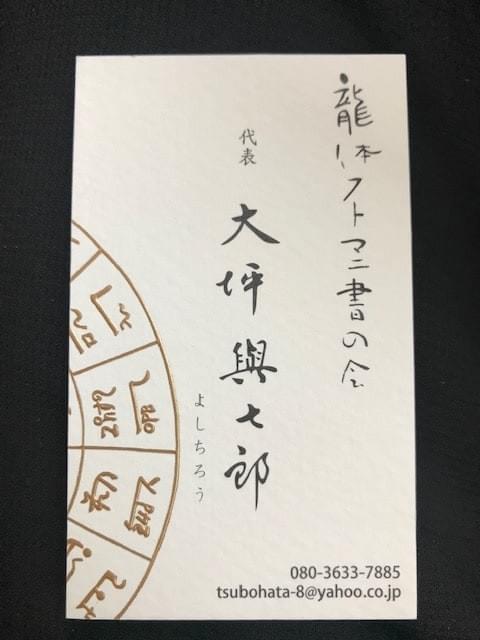 龍体フトマニ書の会
代表
大坪與七郎
よしちろう
080-3633-7885
tsubohata-8@yahoo.co.jp